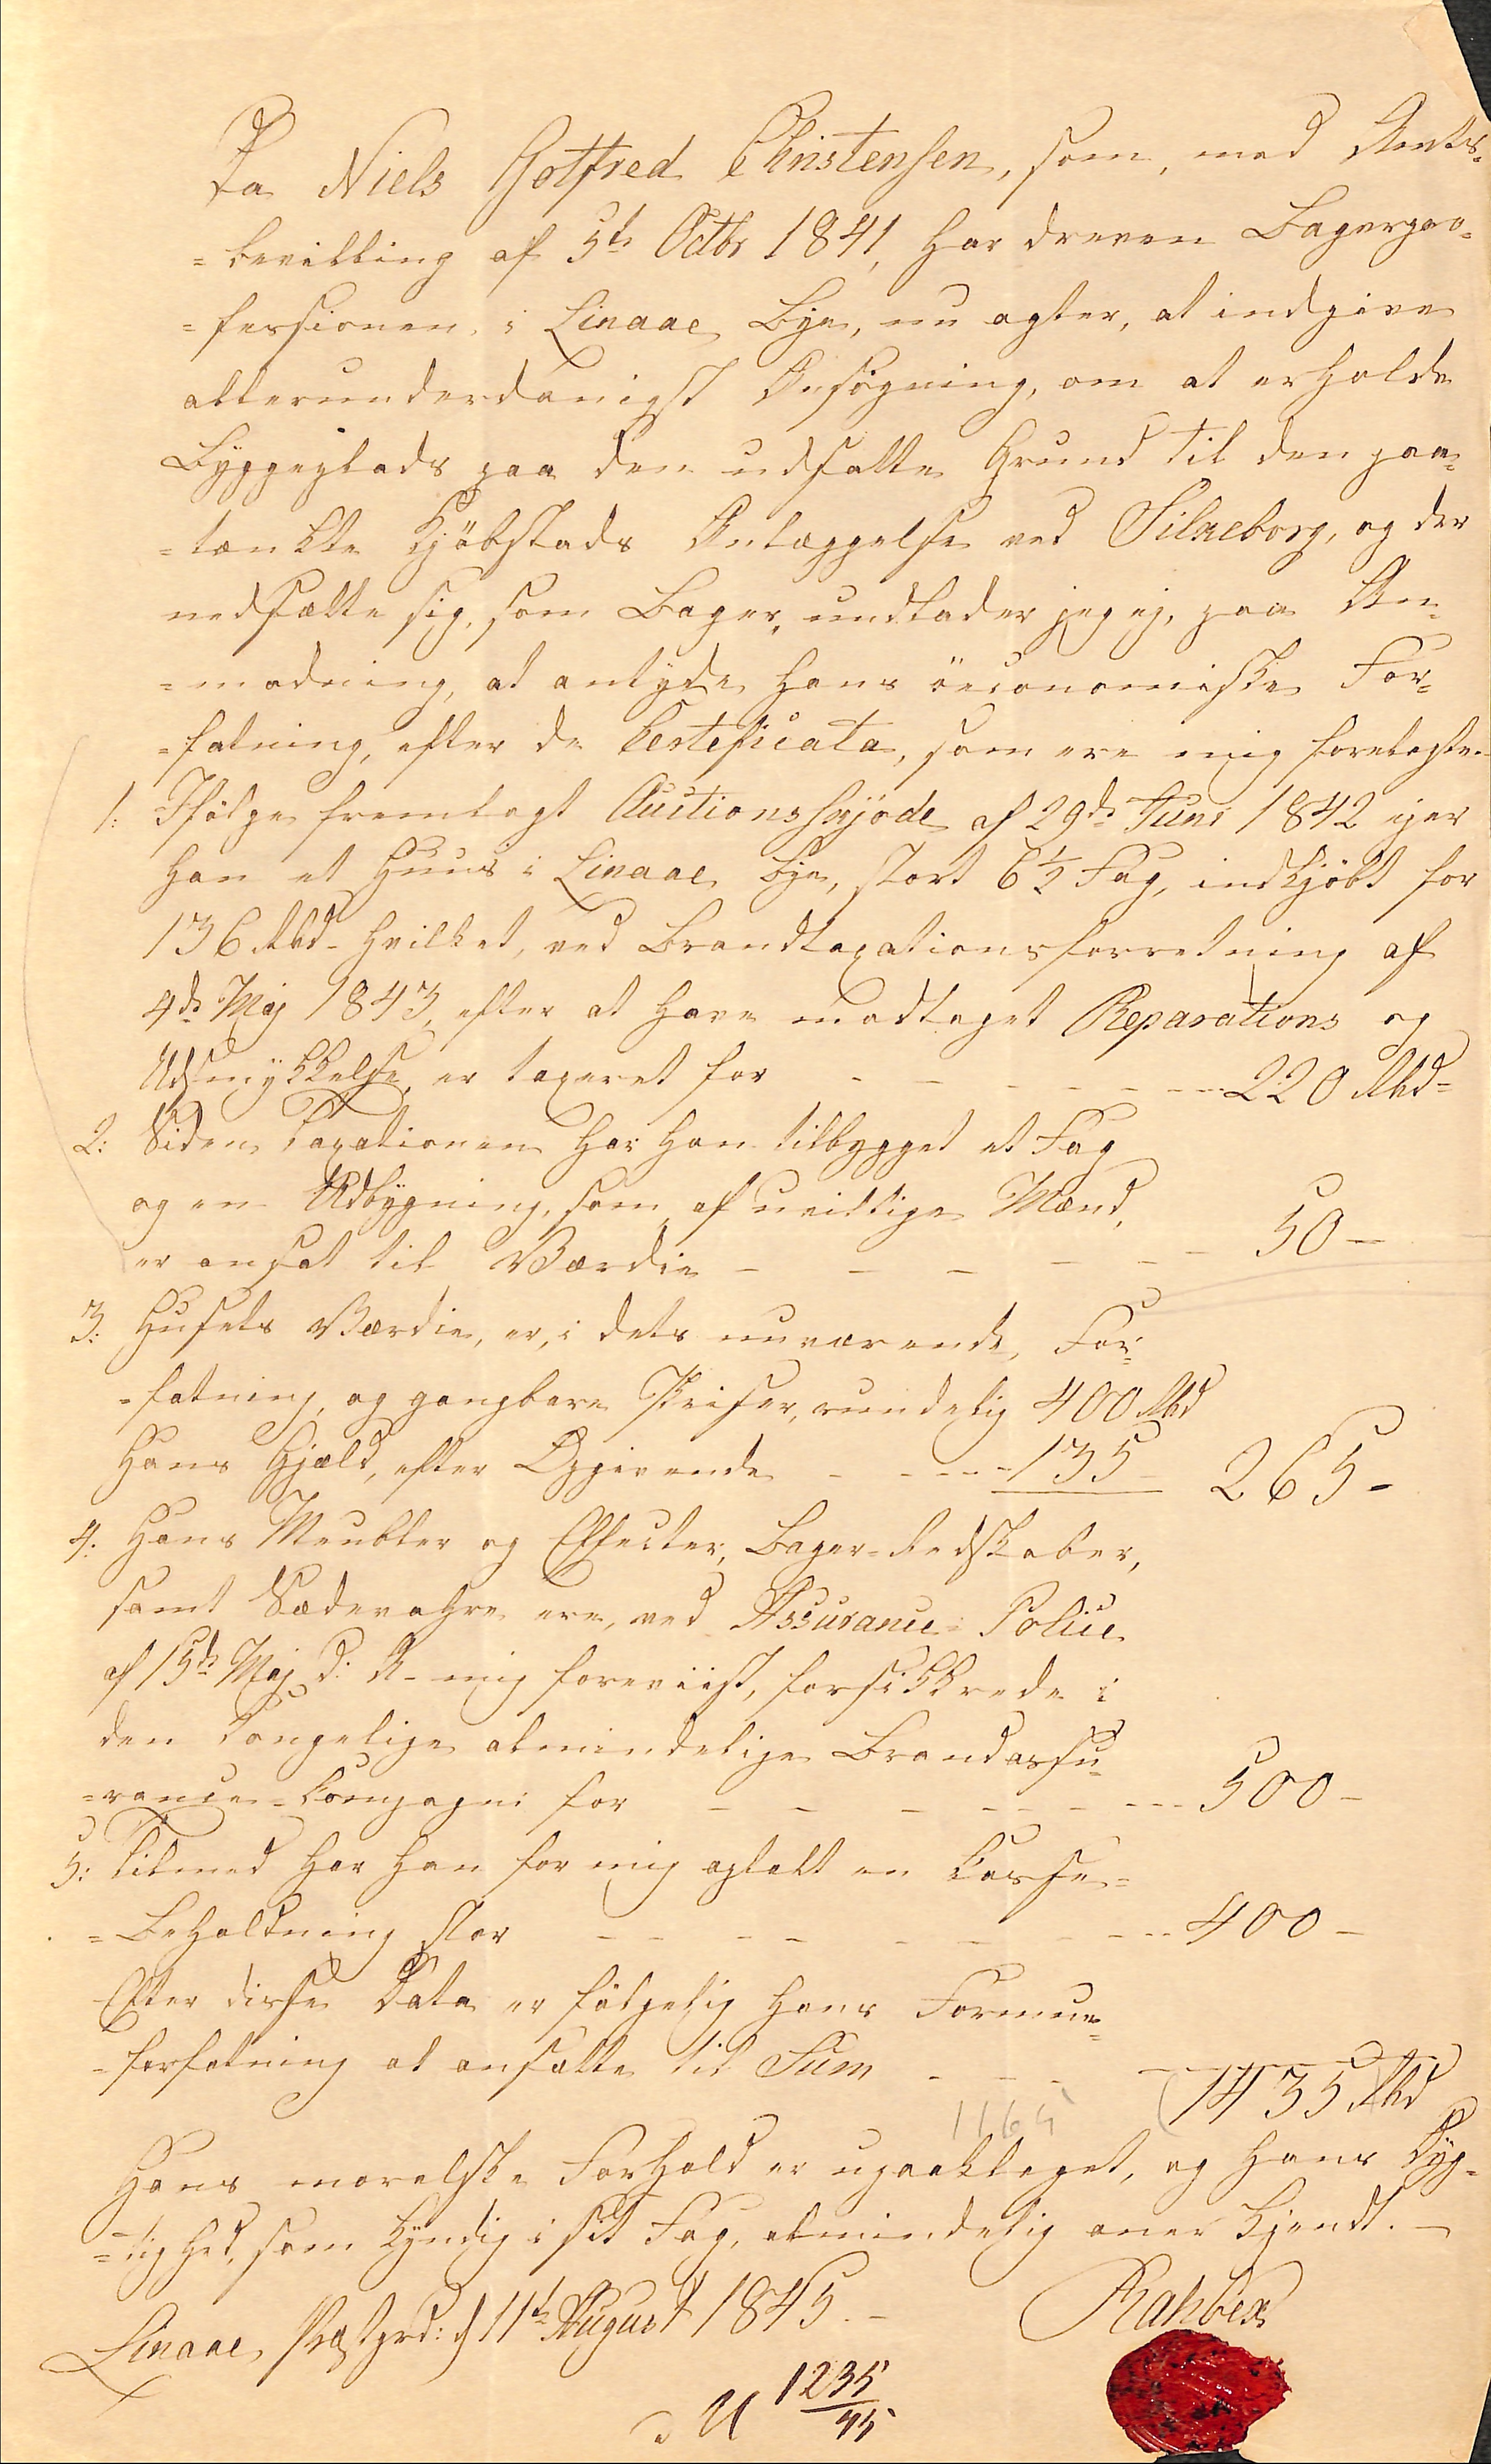 Da Niels Gotfred Christensen, som, med Amts-
=bevilling af 5te Octbr 1841, har dreven Bagerpro-
=fessionen, i Linaae Bye, nu agter, at indgive
allerunderdanigst Ansøgning, om at erholde
Byggeplads paa den udsatte Grund til den paa-
=tænkte Kjöbstads Anlæggelse ved Silkeborg, og der
nedsætte sig, som Bager, undlader jeg ej, paa An-
=modning, at antyde hans öeconomiske For-
=fatning, efter de Certeficata, som ere mig forelagte.
1: Ifölge fremlagt Auctionsskjöde af 29de Juni 1842 ejer
han et Huus i Linaae Bye, stort 6½ Fag, indkjöbt for
136 Rbd- hvilket, ved Brandtaxationsforretning af
4de Maj 1843, efter at have modtaget Reparations og
Udsmykkelse, er taxeret for - - - - - - 220 Rbd=
2: Siden Taxationen har han tilbygget et Fag
og en Udbygning, som af uvillige Mænd,
er ansat til Værdie - - - - - - 50 -
3: Husets Værdie, er, i dets nuværende, For-
=fatning, og gangbare Priser, rundelig 400 Rbd
Hans Gjæld, efter Opgivende - - - - 135 - 265 -
4: Hans Meubler og Effecter, Bager-Redskaber,
samt Sædevahre ere, ved Assurance-Police
af 15de Maj d: A- mig foreviist, forsikkrede i
den Kongelige almindelige Brandassu-
=rance-Compagni for - - - - - - 500 -
5: Tilmed har han for mig optalt en Casse-
=Beholdning stor - - - - - - - 400 -
Efter disse Data er fölgelig hans Formue-
=forfatning at ansætte til Sum - - - 1435 Rbd
1165
Hans moralske Forhold er upaaklaget, og hans Dyg-
=tighed, som kyndig i sit Fag, almindelig anerkjendt. -
Linaae Præstgrd: d 11te August 1845. -
Rahbek
M 1235/45